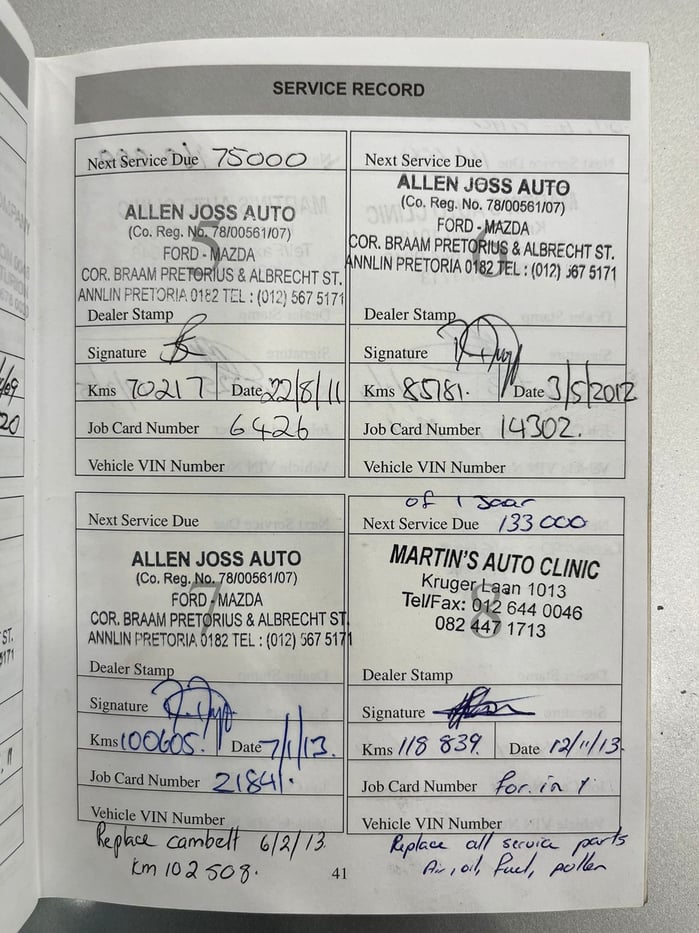 SERVICE RECORD
Next Service Due 75000
ALLEN JOSS AUTO
(Co. Reg. No. 78/00561/07)
5
FORD - MAZDA
COR. BRAAM PRETORIUS & ALBRECHT ST.
ANNLIN PRETORIA 0182 TEL : (012) 567 5171
Dealer Stamp
Signature
Kms 70217 Date 22/8/11
Job Card Number 6426
Vehicle VIN Number
Next Service Due
ALLEN JOSS AUTO
(Co. Reg. No. 78/00561/07)
FORD - MAZDA
6
COR. BRAAM PRETORIUS & ALBRECHT ST.
ANNLIN PRETORIA 0182 TEL : (012) 567 5171
Dealer Stamp
Signature
Kms 85181. Date 3/5/2012
Job Card Number 14302.
Vehicle VIN Number
Next Service Due
ALLEN JOSS AUTO
(Co. Reg. No. 78/00561/07)
7
FORD - MAZDA
COR. BRAAM PRETORIUS & ALBRECHT ST.
ANNLIN PRETORIA 0182 TEL : (012) 567 5171
Dealer Stamp
Signature
Kms 100605. Date 7/1/13.
Job Card Number 21841.
Vehicle VIN Number
Replace cambelt 6/2/13
Km 102 508.
of 1 Jaar
Next Service Due 133 000
MARTIN'S AUTO CLINIC
Kruger Laan 1013
8
Tel/Fax: 012 644 0046
082 447 1713
Dealer Stamp
Signature
Kms 118 839. Date 12/11/13.
Job Card Number for. in
Vehicle VIN Number
Replace all service parts
Air, oil, fuel, pollen
41